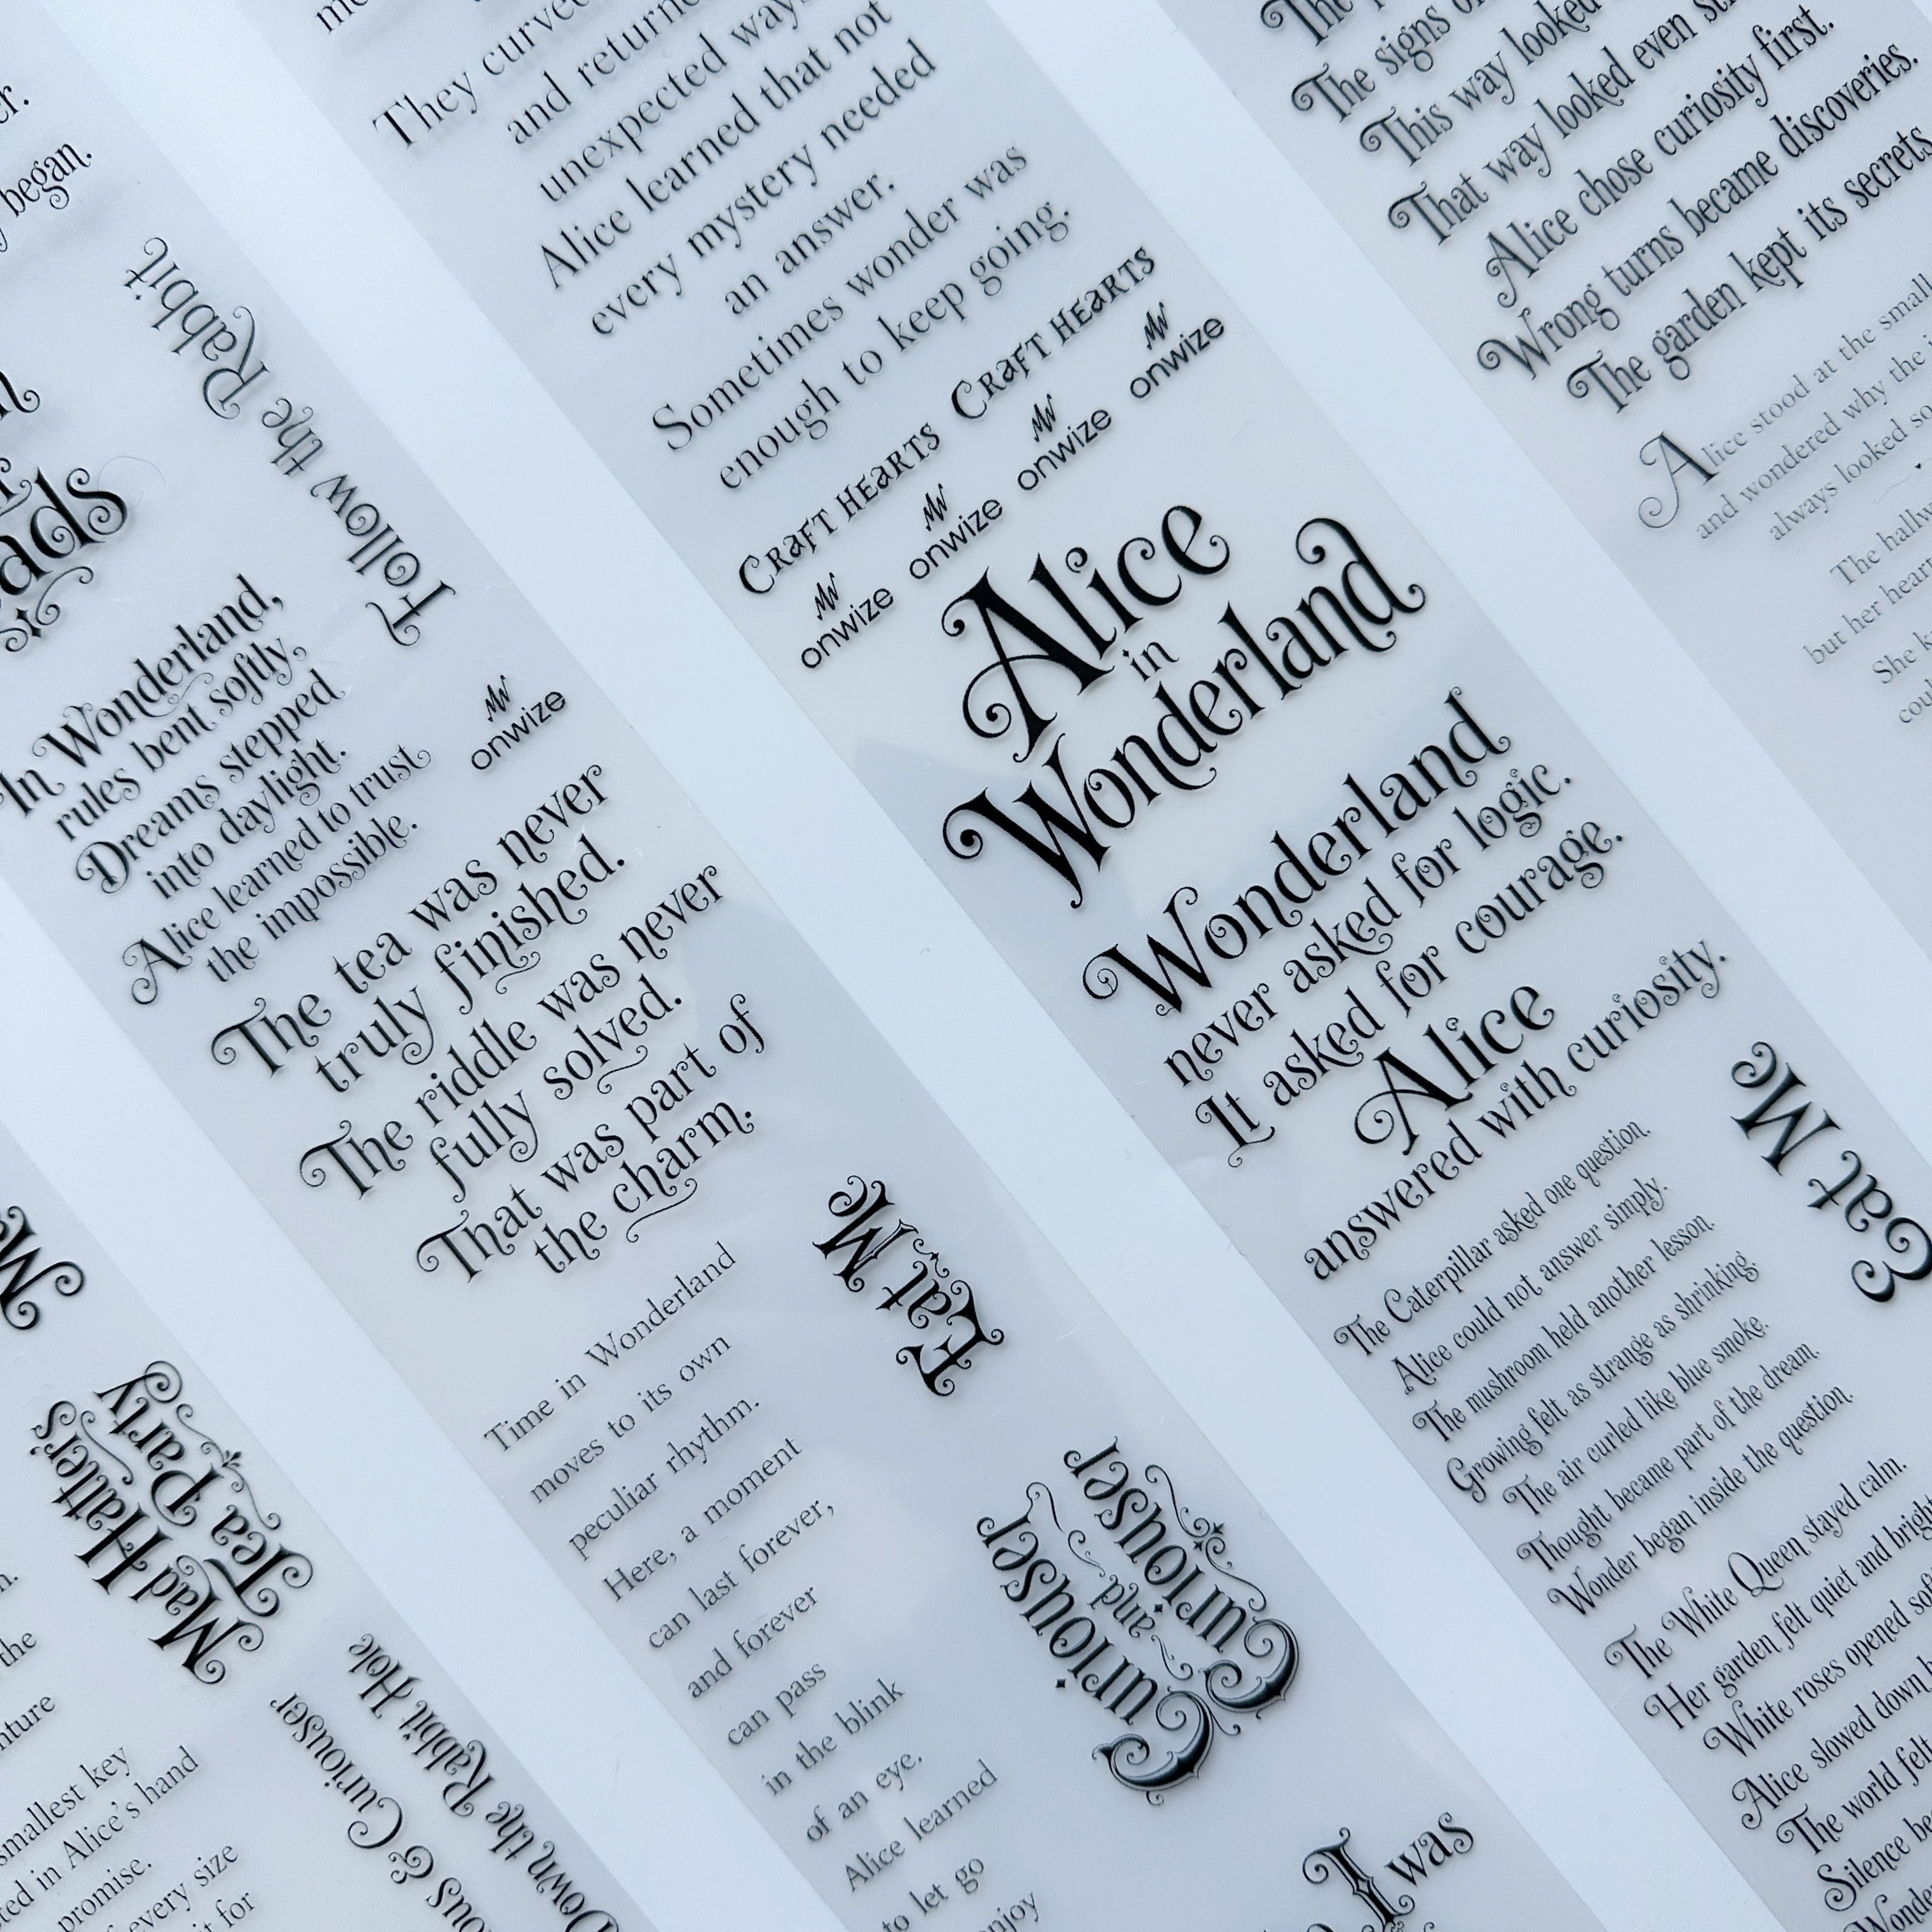 er.
began.
ads
Follow the Rabbit
In Wonderland,
rules bent softly,
Dreams stepped
into daylight.
Alice learned to trust
the impossible.
onwize
The tea was never
truly finished.
The riddle was never
fully solved.
That was part of
the charm.
Eat Me
Time in Wonderland
moves to its own
peculiar rhythm.
Here, a moment
can last forever,
and forever
can pass
in the blink
of an eye.
Alice learned
to let go
Curiouser
and
Curiouser
I was
Mad Hatter's
Tea Party
Down the Rabbit Hole
& Curiouser
the
smallest key
in Alice's hand
promise.
every size
it for
They curved
and returned
unexpected ways
Alice learned that not
every mystery needed
an answer.
Sometimes wonder was
enough to keep going.
CRAFT HEARTS CRAFT HEARTS
onwize onwize onwize onwize
Alice
in
Wonderland
Wonderland
never asked for logic.
It asked for courage.
Alice
answered with curiosity.
Eat Me
The Caterpillar asked one question.
Alice could not answer simply.
The mushroom held another lesson.
Growing felt as strange as shrinking.
The air curled like blue smoke.
Thought became part of the dream.
Wonder began inside the question.
The White Queen stayed calm.
Her garden felt quiet and bright
White roses opened
Alice slowed down
The world felt
Silence
The
The signs
This way looked
That way looked even
Alice chose curiosity first.
Wrong turns became discoveries.
The garden kept its secrets
Alice stood at the small
and wondered why the
always looked so
The hallw
but her heart
She